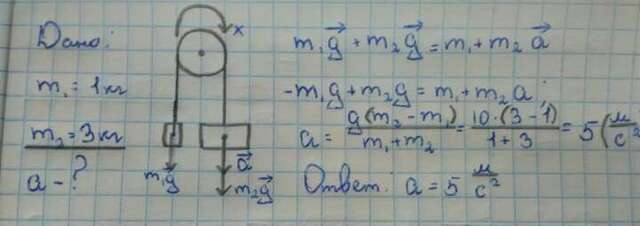 Дано:
m₁ = 1 кг
m₂ = 3 кг
a - ?
x
m₁g⃗
a⃗
m₂g⃗
m₁g⃗ + m₂g⃗ = m₁ + m₂ a⃗
-m₁g + m₂g = m₁ + m₂ a;
a = g(m₂ - m₁) / m₁ + m₂ = 10·(3 - 1) / 1 + 3 = 5 (м/с²
Ответ: a = 5 м/с²